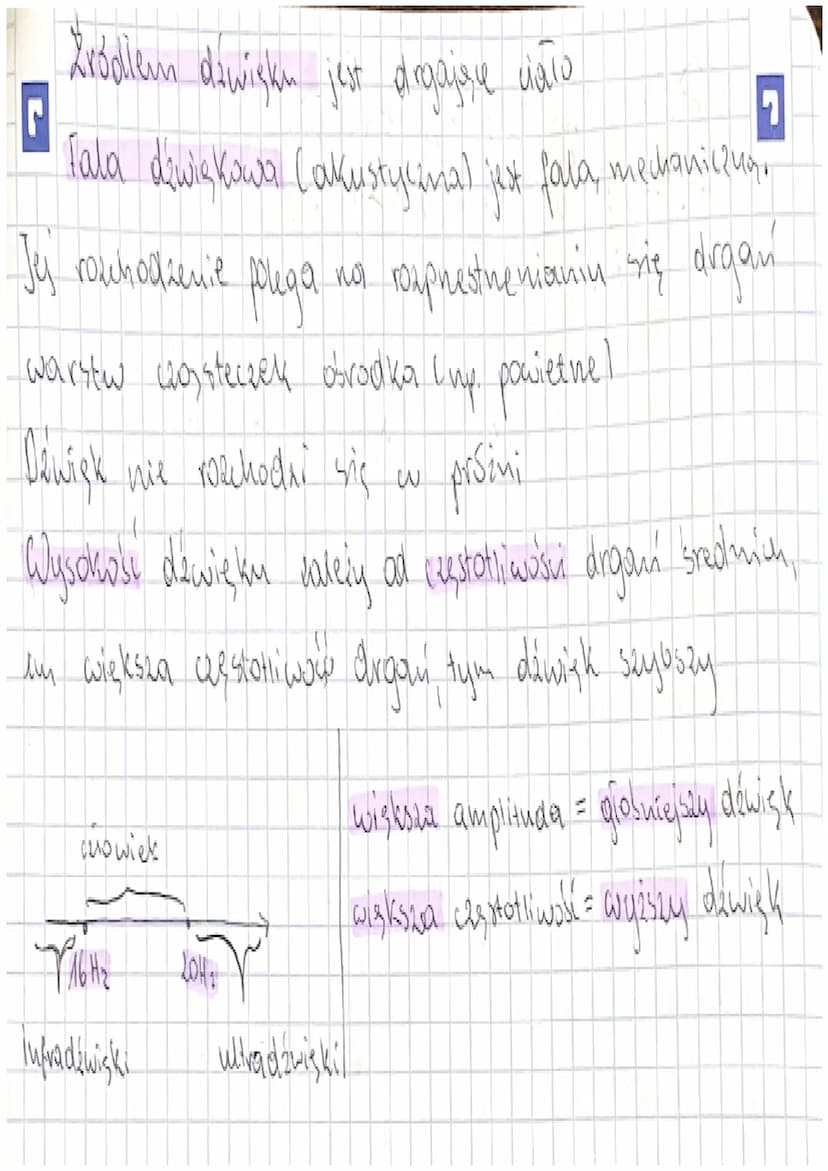 Źródłem dźwięku jest drgające ciało
Fala dźwiękowa (akustyczna) jest falą mechaniczną.
Jej rozchodzenie polega na rozprzestrzenianiu się drgań
warstw cząsteczek ośrodka (np. powietrze)
Dźwięk nie rozchodzi się w próżni
Wysokość dźwięku zależy od częstotliwości drgań średnich,
im większa częstotliwość drgań, tym dźwięk szybszy
większa amplituda = głośniejszy dźwięk
większa częstotliwość = wyższy dźwięk
człowiek
16Hz 20Hz
Infradźwięki ultradźwięki